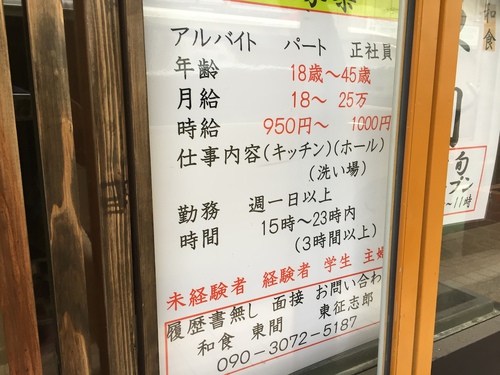 アルバイト パート 正社員
年齢 18歳〜45歳
月給 18〜 25万
時給 950円〜 1000円
仕事内容(キッチン)(ホール)
(洗い場)
勤務 週一日以上
時間 15時〜23時内
(3時間以上)
未経験者 経験者 学生 主婦
履歴書無し 面接 お問い合わ
和食 東間 東征志郎
090-3072-5187
和食
旬
プン
〜11時